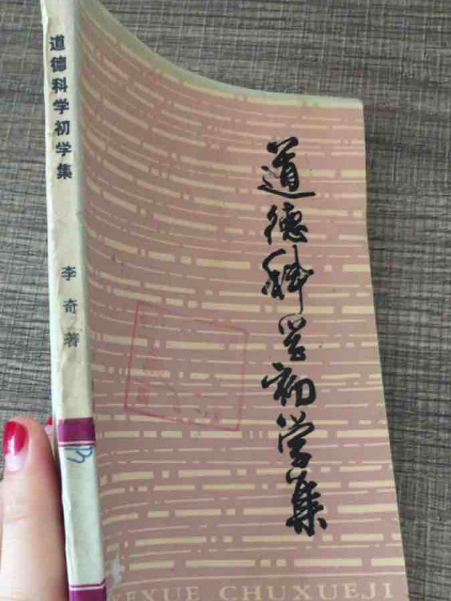 道德科学初学集
李奇著
道德科学初学集
KEXUE CHUXUEJI